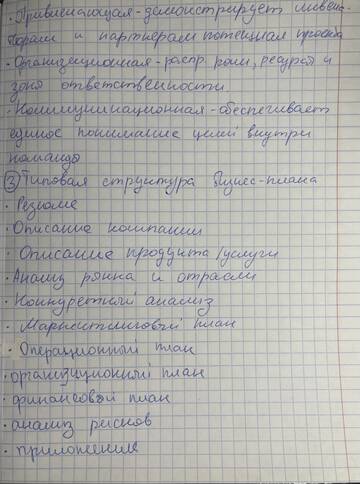 · Привлекающая - демонстрирует инвес-
торам и партнерам потенциал проекта
· Организационная - распр. роли, ресурсы и
зоны ответственности.
· Коммуникационная - обеспечивает
единое понимание целей внутри
команды
③ Типовая структура бизнес-плана
· Резюме
· Описание компании
· Описание продукта/услуги
· Анализ рынка и отрасли
· Конкурентный анализ
· Маркетинговый план
· Операционный план
· организационный план
· финансовый план
· анализ рисков
· приложения